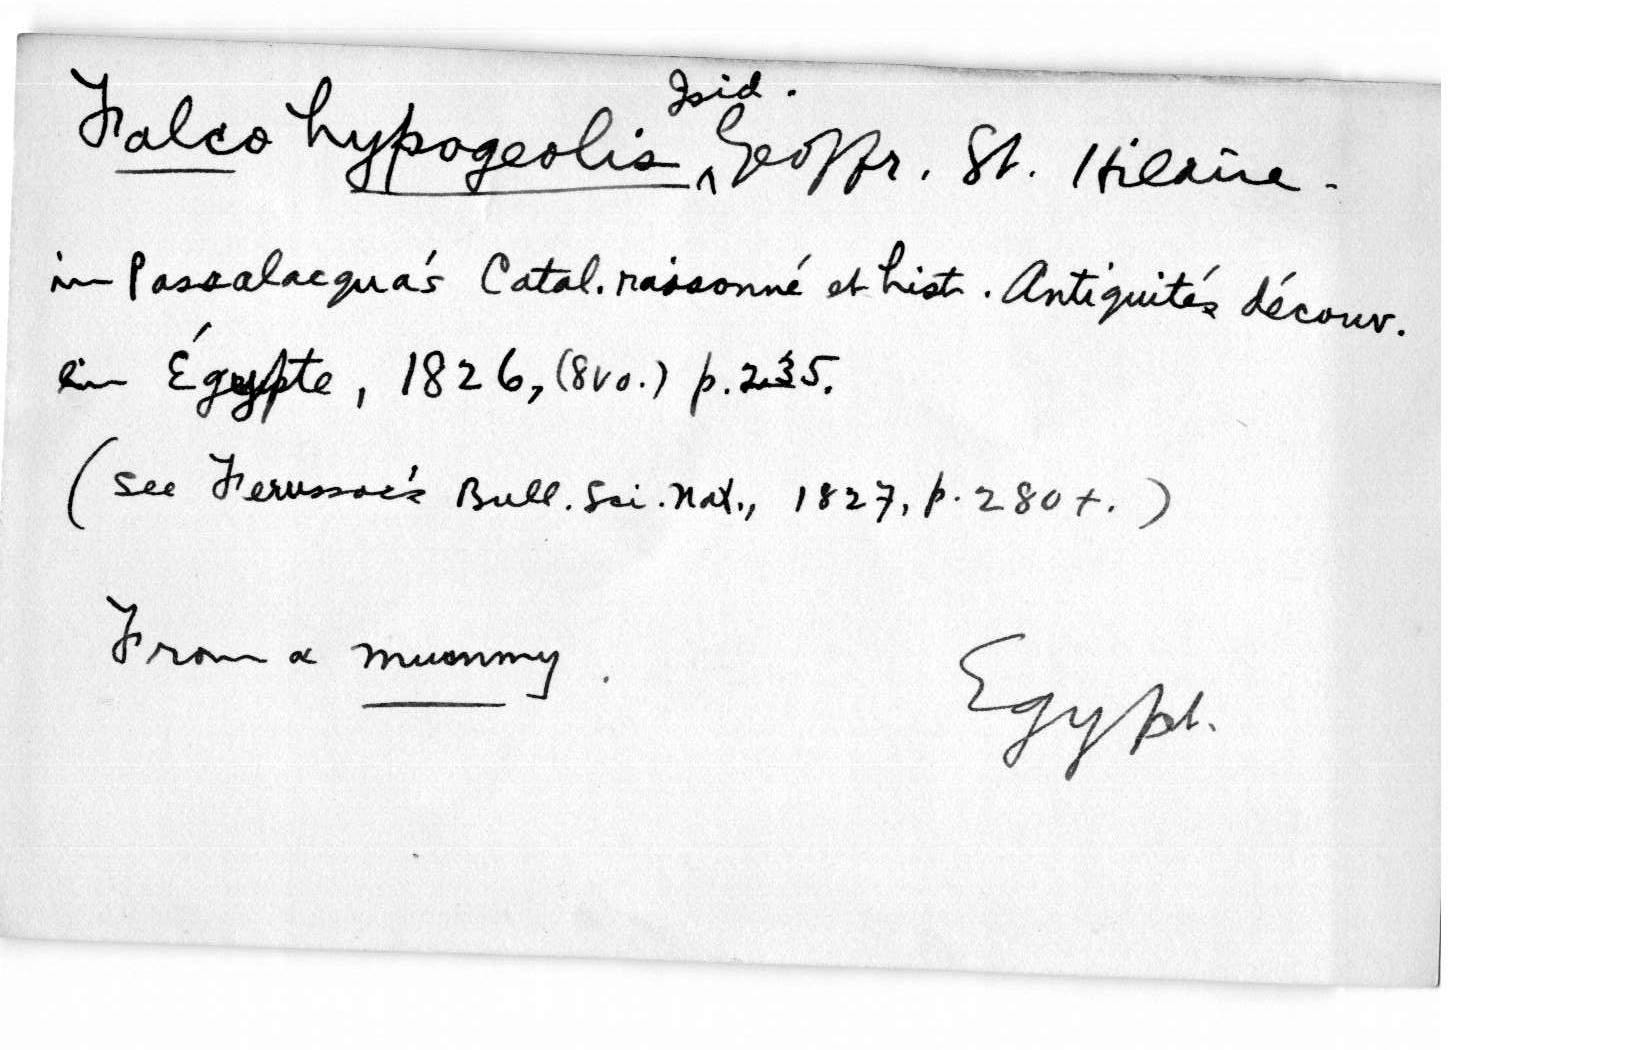 Falco hypogeolis Isid. Geoffr. St. Hilaire.
in Passalacqua's Catal. raisonné et hist. Antiquités découv.
en Égypte, 1826, (8vo.) p. 235.
(see Ferussac's Bull. Sci. Nat., 1827, p. 280+.)
From a mummy.
Egypt.